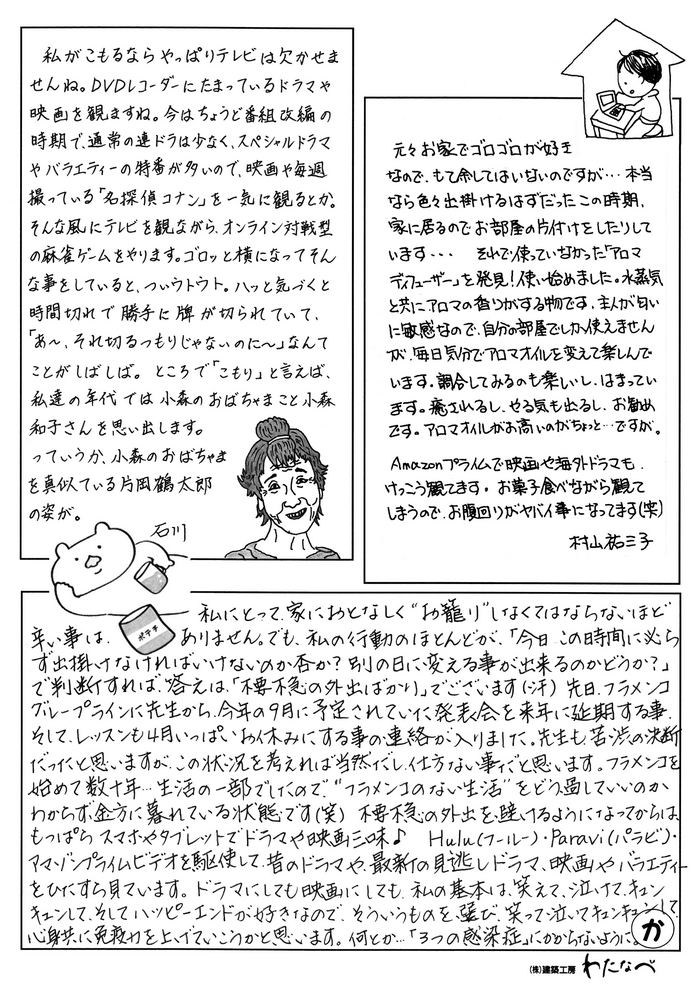 私がこもるならやっぱりテレビは欠かせま
せんね。DVDレコーダーにたまっているドラマや
映画を観ますね。今はちょうど番組改編の
時期で、通常の連ドラは少なく、スペシャルドラマ
やバラエティーの特番が多いので、映画や毎週
撮っている「名探偵コナン」を一気に観るとか。
そんな風にテレビを観ながら、オンライン対戦型
の麻雀ゲームをやります。ゴロッと横になってそん
な事をしていると、ついウトウト。ハッと気づくと
時間切れで勝手に牌が切られていて、
「あ〜、それ切るつもりじゃないのに〜」なんて
ことがしばしば。ところで「こもり」と言えば、
私達の年代では小森のおばちゃまこと小森
和子さんを思い出します。
っていうか、小森のおばちゃま
を真似ている片岡鶴太郎
の姿が。
石川
元々お家でゴロゴロが好き
なので、もて余してはいないのですが…本当
なら色々出掛けるはずだったこの時期、
家に居るのでお部屋の片付けをしたりして
います・・・ それで使っていなかった「アロマ
ディフューザー」を発見!使い始めました。水蒸気
と共にアロマの香りがする物です。主人が匂い
に敏感なので、自分の部屋でしか使えません
が、毎日気分でアロマオイルを変えて楽しんで
います。調合してみるのも楽しいし、はまってい
ます。癒されるし、やる気も出るし、お勧め
です。アロマオイルがお高いのがちょっと…ですが。
Amazonプライムで映画や海外ドラマも、
けっこう観てます。お菓子食べながら観て
しまうので、お腹回りがヤバイ事になってます(笑)
村山祐三子
ポテチ
私にとって、家におとなしく“お籠り”しなくてはならないほど
辛い事は、ありません。でも、私の行動のほとんどが、「今日この時間に必ら
ず出掛けなければいけないのか否か?別の日に変える事が出来るのかどうか?」
で判断すれば、答えは、「不要不急の外出ばかり」でございます(汗) 先日、フラメンコ
グループラインに先生から、今年の9月に予定されていた発表会を来年に延期する事、
そして、レッスンも4月いっぱいお休みにする事の連絡が入りました。先生も、苦渋の決断
だったと思いますが、この状況を考えれば当然だし、仕方ない事だと思います。フラメンコを
始めて数十年…生活の一部でしたので、“フラメンコのない生活”をどう過していいのか
わからず、途方に暮れている状態です(笑) 不要不急の外出を避けるようになってからは、
もっぱらスマホやタブレットでドラマや映画三昧♪ Hulu(フールー)・Paravi(パラビ)・
アマゾンプライムビデオを駆使して、昔のドラマや、最新の見逃しドラマ、映画やバラエティー
をひたすら見ています。ドラマにしても映画にしても、私の基本は、笑えて、泣けて、キュン
キュンして、そしてハッピーエンドが好きなので、そういうものを選び、笑って泣いてキュンキュンして、
心身共に免疫力を上げていこうかと思います。何とか…「3つの感染症」にかからないように。
か
(株)建築工房 わたなべ